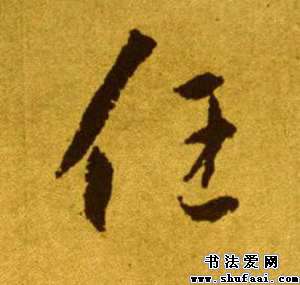 任
书法爱网
www.shufaai.com